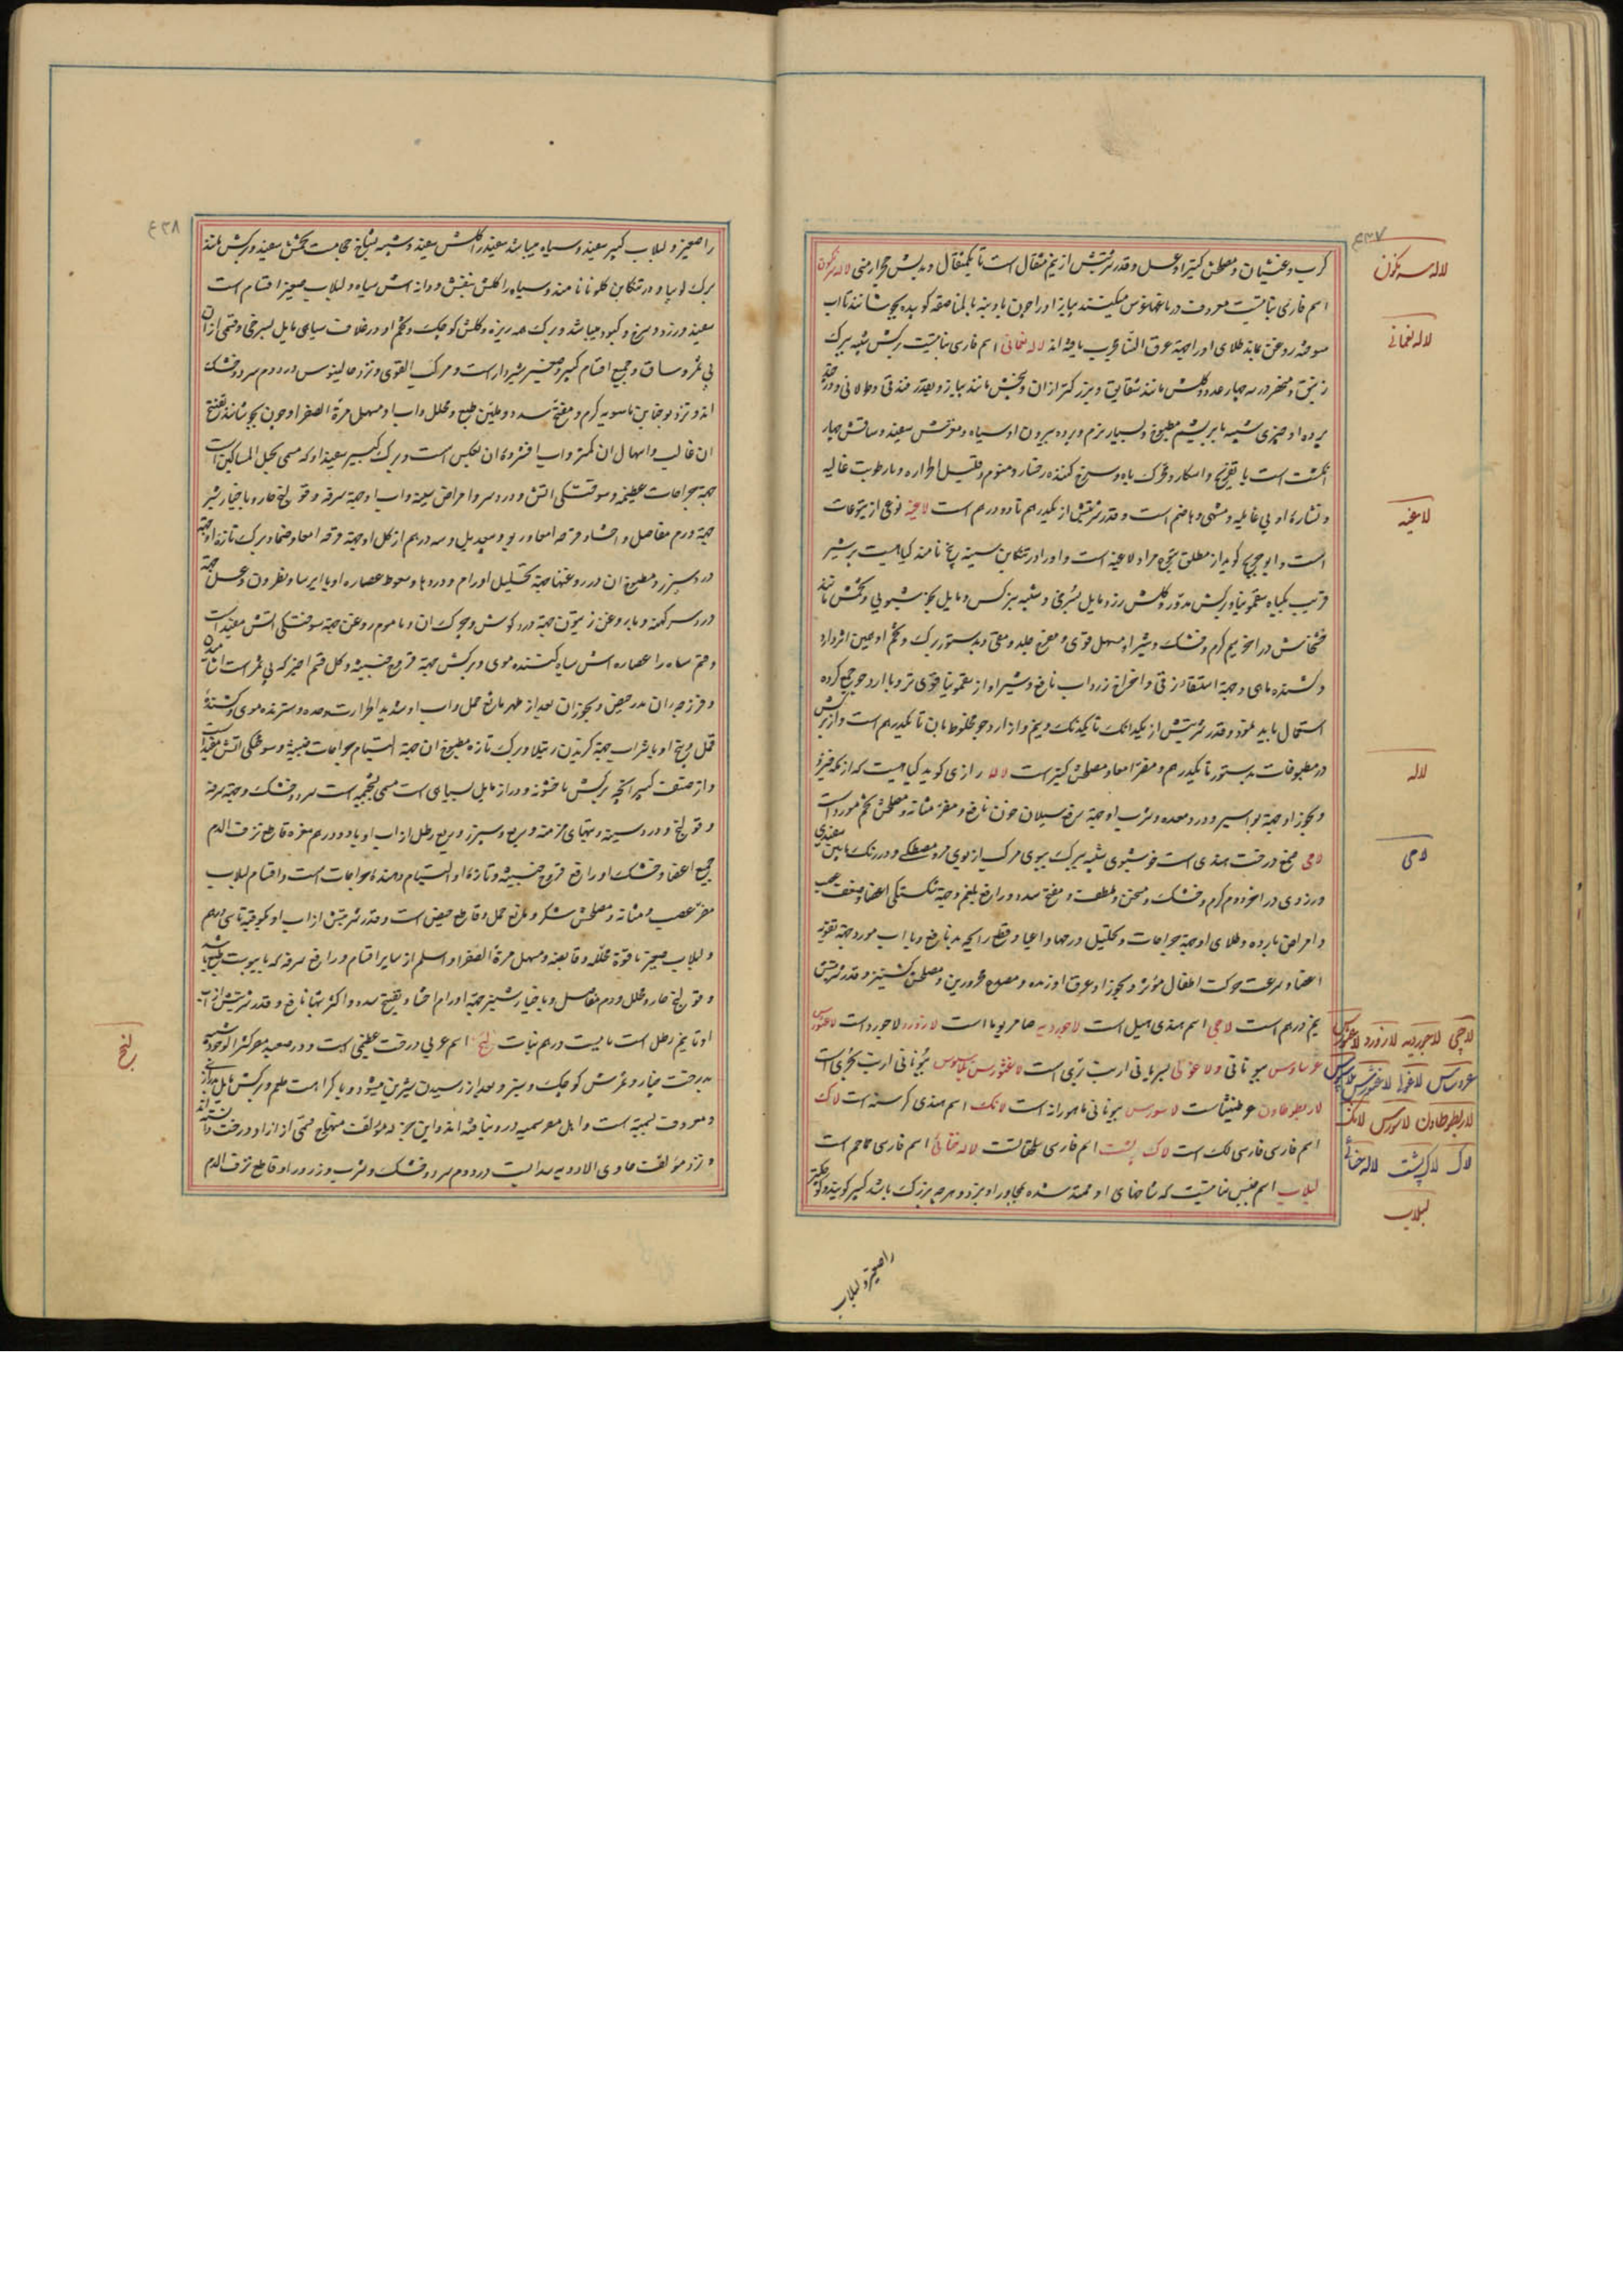 ۴۳۷
کرب و غثیان و مصلحش کتیرا و عسل و قدر شربتش از نیم مثقال است تا یکمثقال و بدلش حجر ارمنی لاله سرنکون
اسم فارسی نباتیست معروف در باغها غرس میکنند پیاز او را چون با روغن بالمناصفه کوبیده بجوشانند تا آب
سوخته روغن بماند طلای او را جهة عرق النسا مجرب یافته اند لاله نعمانی اسم فارسی نباتیست برکش شبیه ببرک
زنبق و منحصر در سه چهار عدد و کلش مانند شقایق و بزرکتر از ان و بیخش مانند پیاز و بقدر فندقی و طولانی و در
پرده او چیزی شبیه بابریشم مطبوخ و بسیار نرم و پرده بیرون او سیاه و مغزش سفید و ساقش چهار
انکشت است با تفریح و اسکار و محرک باه و سرخ کننده رخسار و منوم و قلیل الحراره و با رطوبت غالبه
و نشاره او بی غایله و مشهی و هاضم است و قدر شربتش از یکدرهم تا دو درهم است لاغیه نوعی از یتوعات
است و ابو جریج کوید از مطلق یتوع مراد لاغیه است و او را در تنکابن سینه پخ نامند کیاهیست پر شیر
قریب بکیاه سقمونیا و برکش مدور و کلش زرد مایل بسرخی و شبیه بنرکس و مایل بخوشبویی و تخمش مانند
خشخاش در آخر سیم کرم و خشک و شیر او مسهل قوی و مقرح جلد و مقی و بدستور برک و تخم او همین اثر دارد
و کشنده ماهی و جهة استسقاء زقی و اخراج زرداب نافع و شیر او از سقمونیا قوی تر و با آرد جو جمع کرده
استعمال باید نمود و قدر شربتش از یکدانک تا یکدانک و نیم و از آرد جو مخلوط بان تا یکدرهم است و از برکش
در مطبوخات بدستور تا یکدرهم و مضر امعا و مصلحش کتیراست لاله رازی کوید کیاهیست که از مکه خیزد
و بخور او جهة بواسیر و درد معده و شرب او جهة سرفه و سیلان خون نافع و مضر مثانه و مصلحش تخم مورد است
لامی صمغ درخت هندی است خوشبوی شبیه ببرک ببوی مرکب از بوی مر و مصطکی و در رنک مابین سفیدی
و زردی در آخر دوم کرم و خشک و مسخن و ملطف و مفتح سدد و رافع بلغم و جهة شکستکی اعضا و ضعف عصب
و امراض بارده و طلای او جهة جراحات و تحلیل ورمها و اعیا و قطع رایحه بد نافع و با آب مورد جهة تقویة
اعضا و سرعت حرکت اطفال مؤثر و بخور او عرق آورنده و مصدع محرورین و مصلحش کشنیز و قدر شربتش
نیم درهم است لاچی اسم هندی هیل است لاجوردیه حامر یوما است لازورد لاجورد است لاغنوس
عرساوس بیونانی و لاغوئی بسریانی ارنب بری است لاغثورس بلاسیوس بیونانی ارنب بحری است
لاربطوطاون عرطنیثاست لاسورس بیونانی ماهودانه است لانک اسم هندی کرسنه است لاک
اسم فارسی لک است لاک پشت اسم فارسی سلحفاتست لاله خنائی اسم فارسی حماحم است
لبلاب اسم جنس نباتیست که شاخهای او ممتد شده بمجاور او پیچد و هرچه بزرک باشد کبیر کویند و کوچکتر
را صغیر و لبلاب
لاله سرنکون
لاله نعمانی
لاغیه
لاله
لامی
لاچی لاجوردیه لازورد لاغنوس
عرساس لاغوئی لاغثورس بلاسیوس
لاربطوطاون لاسورس لانک
لاک لاک پشت لاله خنائی
لبلاب
۴۳۸
را صغیر و لبلاب کبیر سفید و سیاه میباشد سفید را کلش سفید و شبیه بشاخ حجامت و تخمش سفید و برکش مانند
برک لوبیا و در تنکابن کلونا نامند و سیاه را کلش بنفش و دانه اش سیاه و لبلاب صغیر اقسام است
سفید و زرد و سرخ و کبود میباشد و برک همه ریزه و کلش کوچک و تخم او در غلاف سیاه مایل بسرخی و قسمی از ان
بی ثمر و ساق و جمیع اقسام کبیر و صغیر شیردار است و مرکب القوی و نزد جالینوس در دوم سرد و خشک
اند و نزد یوحنا بن ماسویه کرم و مفتح سدد و ملین طبع و محلل و آب او مسهل مرة الصفرا و چون بجوشانند تفتیح
ان غالب و اسهال ان کمتر و آب افشرده ان بعکس است و برک کبیر سفید او که مسمی بحبل المساکین است
جهة جراحات عظیمه و سوختکی آتش و درد سر و امراض سینه و آب او جهة سرفه و قولنج حار و با خیار شنبر
جهة ورم مفاصل و احشاء و قرحه امعا و ربو و سپرز و سه درهم از کل او جهة قرحه امعا و ضماد برک تازه او جهة
درد سپرز و مطبوخ ان در روغنها جهة تحلیل اورام و دردها و سعوط عصاره او با ایرسا و نطرون و عسل جهة
درد سر کهنه و با روغن زیتون جهة درد کوش و چرک ان و با موم روغن جهة سوختکی آتش مفید است
و قسم سیاه را عصاره اش سیاه کننده موی و برکش جهة قروح خبیثه و کل قسم اخیر که بی ثمر است
و فرزجه ان مدر حیض و بخور ان بعد از طهر مانع حمل و آب او شدید الحرارت و حده و سترنده موی و کشنده
قمل و بیخ او با شراب جهة کزیدن رتیلا و برک تازه مطبوخ ان جهة التیام جراحات خبیثه و سوختکی آتش مفید است
و از صنف کبیر آنچه برکش با خشونة و دراز مایل بسیاهی است مسمی بلحمیه است سرد و خشک و جهة سرفه
و قولنج و درد سینه و تبهای مزمنه و ربع و سپرز و ربع رطل از آب او با دو درهم مغره قاطع نزف الدم
جمیع اعضا و خشک او رافع قروح خبیثه و تازه او التیام دهنده جراحات است و اقسام لبلاب
مضر عصب و مثانه و مصلحش شکر و مانع حمل و قاطع حیض است و قدر شربتش از آب او یکوقیه تا سی درهم
و لبلاب صغیر با قوة محلله و قابضه و مسهل مرة الصفرا و اسلم از سایر اقسام و رافع سرفه که با یبوست طبع باشد
و قولنج حار و محلل ورم مفاصل و با خیار شنبر جهة اورام احشا و تفتیح سدد و اکثر تبها نافع و قدر شربتش از آب
او تا نیم رطل است با بیست درهم نبات لبخ اسم عربی درخت عظیمی است و در صعید مصر کثیر الوجود شبیه
بدرخت چنار و ثمرش کوچک و سبز و بعد از رسیدن شیرین میشود و با کراهت طعم و برکش مایل
و معروف لبخیه است و اهل مصر سمیه در او نیافته اند و این بجز له مؤلف منهاج قسمی از آزاد درخت دانسته اند
و نزد مؤلف حاوی الادویه سدابیست در دوم سرد و خشک و شرب و زرور او قاطع نزف الدم
لبخ